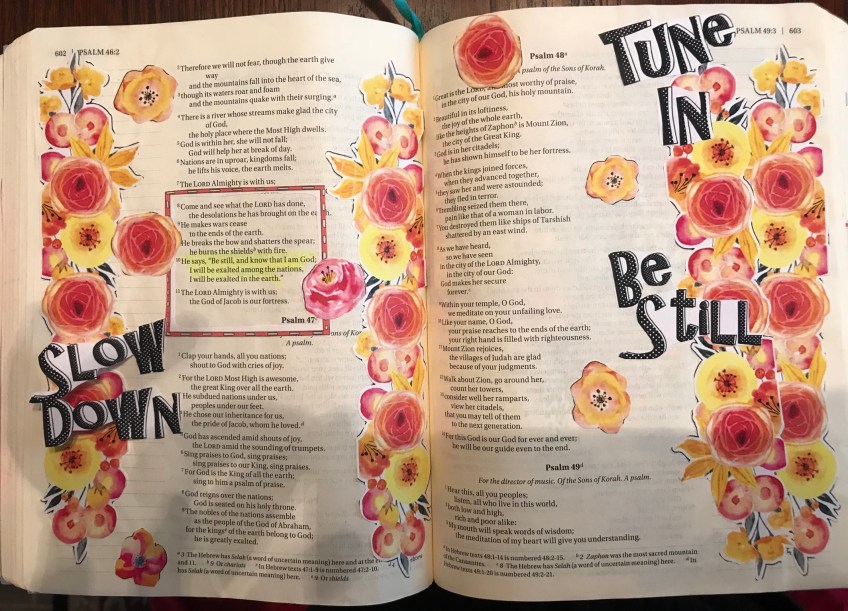 602 | PSALM 46:2
2Therefore we will not fear, though the earth give
way
and the mountains fall into the heart of the sea,
3though its waters roar and foam
and the mountains quake with their surging.a
4There is a river whose streams make glad the city
of God,
the holy place where the Most High dwells.
5God is within her, she will not fall;
God will help her at break of day.
6Nations are in uproar, kingdoms fall;
he lifts his voice, the earth melts.
7The LORD Almighty is with us;
8Come and see what the LORD has done,
the desolations he has brought on the
9He makes wars cease
to the ends of the earth.
He breaks the bow and shatters the spear;
he burns the shieldsb with fire.
10He says, "Be still, and know that I am God;
I will be exalted among the nations,
I will be exalted in the earth."
11The LORD Almighty is with us;
the God of Jacob is our fortress.
Psalm 47c
A psalm.
1Clap your hands, all you nations;
shout to God with cries of joy.
2For the LORD Most High is awesome,
the great King over all the earth.
He subdued nations under us,
peoples under our feet.
He chose our inheritance for us,
the pride of Jacob, whom he loved.d
God has ascended amid shouts of joy,
the LORD amid the sounding of trumpets.
6Sing praises to God, sing praises;
sing praises to our King, sing praises.
7For God is the King of all the earth;
sing to him a psalm of praise.
8God reigns over the nations;
God is seated on his holy throne.
9The nobles of the nations assemble
as the people of the God of Abraham,
for the kingse of the earth belong to God;
he is greatly exalted.
a 3 The Hebrew has Selah (a word of uncertain meaning) here and at the
and 11. b 9 Or chariots c In Hebrew texts 47:1-9 is numbered 47:2-10.
has Selah (a word of uncertain meaning) here. e 9 Or shields
SLOW
DOWN
PSALM 49:3 | 603
Psalm 48a
A psalm of the Sons of Korah.
Great is the LORD, and most worthy of praise,
in the city of our God, his holy mountain.
Beautiful in its loftiness,
the joy of the whole earth,
like the heights of Zaphonb is Mount Zion,
the city of the Great King.
God is in her citadels;
he has shown himself to be her fortress.
When the kings joined forces,
when they advanced together,
they saw her and were astounded;
they fled in terror.
Trembling seized them there,
pain like that of a woman in labor.
You destroyed them like ships of Tarshish
shattered by an east wind.
As we have heard,
so we have seen
in the city of the LORD Almighty,
in the city of our God:
God makes her secure
forever.c
Within your temple, O God,
we meditate on your unfailing love.
Like your name, O God,
your praise reaches to the ends of the earth;
your right hand is filled with righteousness.
Mount Zion rejoices,
the villages of Judah are glad
because of your judgments.
Walk about Zion, go around her,
count her towers,
consider well her ramparts,
view her citadels,
that you may tell of them
to the next generation.
For this God is our God for ever and ever;
he will be our guide even to the end.
Psalm 49d
For the director of music. Of the Sons of Korah. A psalm.
Hear this, all you peoples;
listen, all who live in this world,
both low and high,
rich and poor alike:
My mouth will speak words of wisdom;
the meditation of my heart will give you understanding.
In Hebrew texts 48:1-14 is numbered 48:2-15. b 2 Zaphon was the most sacred mountain
of the Canaanites. c 8 The Hebrew has Selah (a word of uncertain meaning) here. d In
Hebrew texts 49:1-20 is numbered 49:2-21.
TUNe
IN
Be
STiLL